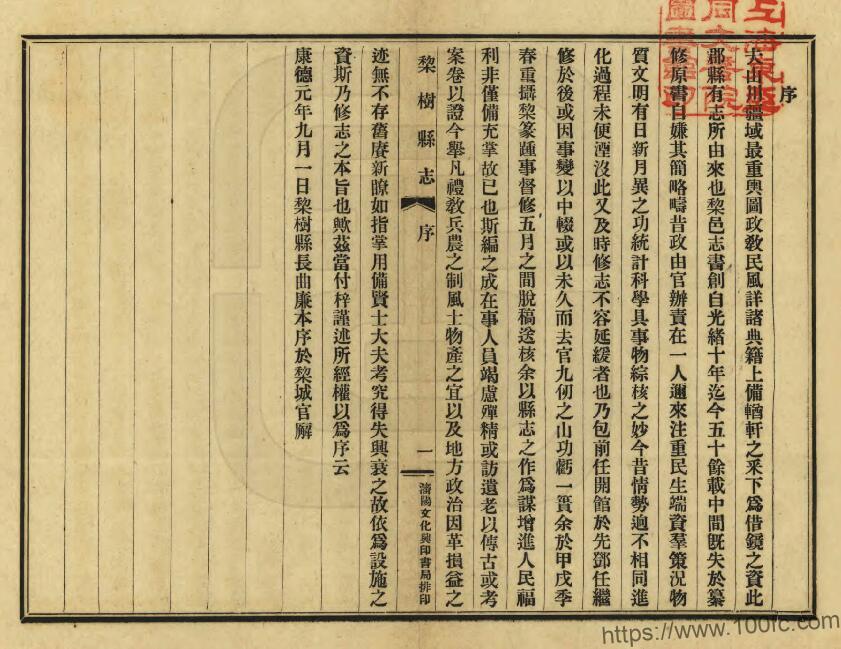 序
夫山川疆域最重輿圖政敎民風詳諸典籍上備輶軒之采下爲借鏡之資此
郡縣有志所由來也棃邑志書創自光緒十年迄今五十餘載中間旣失於纂
修原書自嫌其簡略疇昔政由官辦責在一人邇來注重民生端資羣策況物
質文明有日新月異之功統計科學具事物綜核之妙今昔情勢逈不相同進
化過程未便湮沒此又及時修志不容延緩者也乃包前任開館於先鄧任繼
修於後或因事變以中輟或以未久而去官九仞之山功虧一簣余於甲戌季
春重攝棃篆踵事督修五月之間脫稿送核余以縣志之作爲謀增進人民福
利非僅備充掌故已也斯編之成在事人員竭慮殫精或訪遺老以傳古或考
案卷以證今舉凡禮敎兵農之制風土物產之宜以及地方政治因革損益之
棃樹縣志
序
一
瀋陽文化興印書局排印
迹無不存舊賡新瞭如指掌用備賢士大夫考究得失興衰之故依爲設施之
資斯乃修志之本旨也歟茲當付梓謹述所經權以爲序云
康德元年九月一日棃樹縣長曲廉本序於棃城官廨
https://www.100fc.com